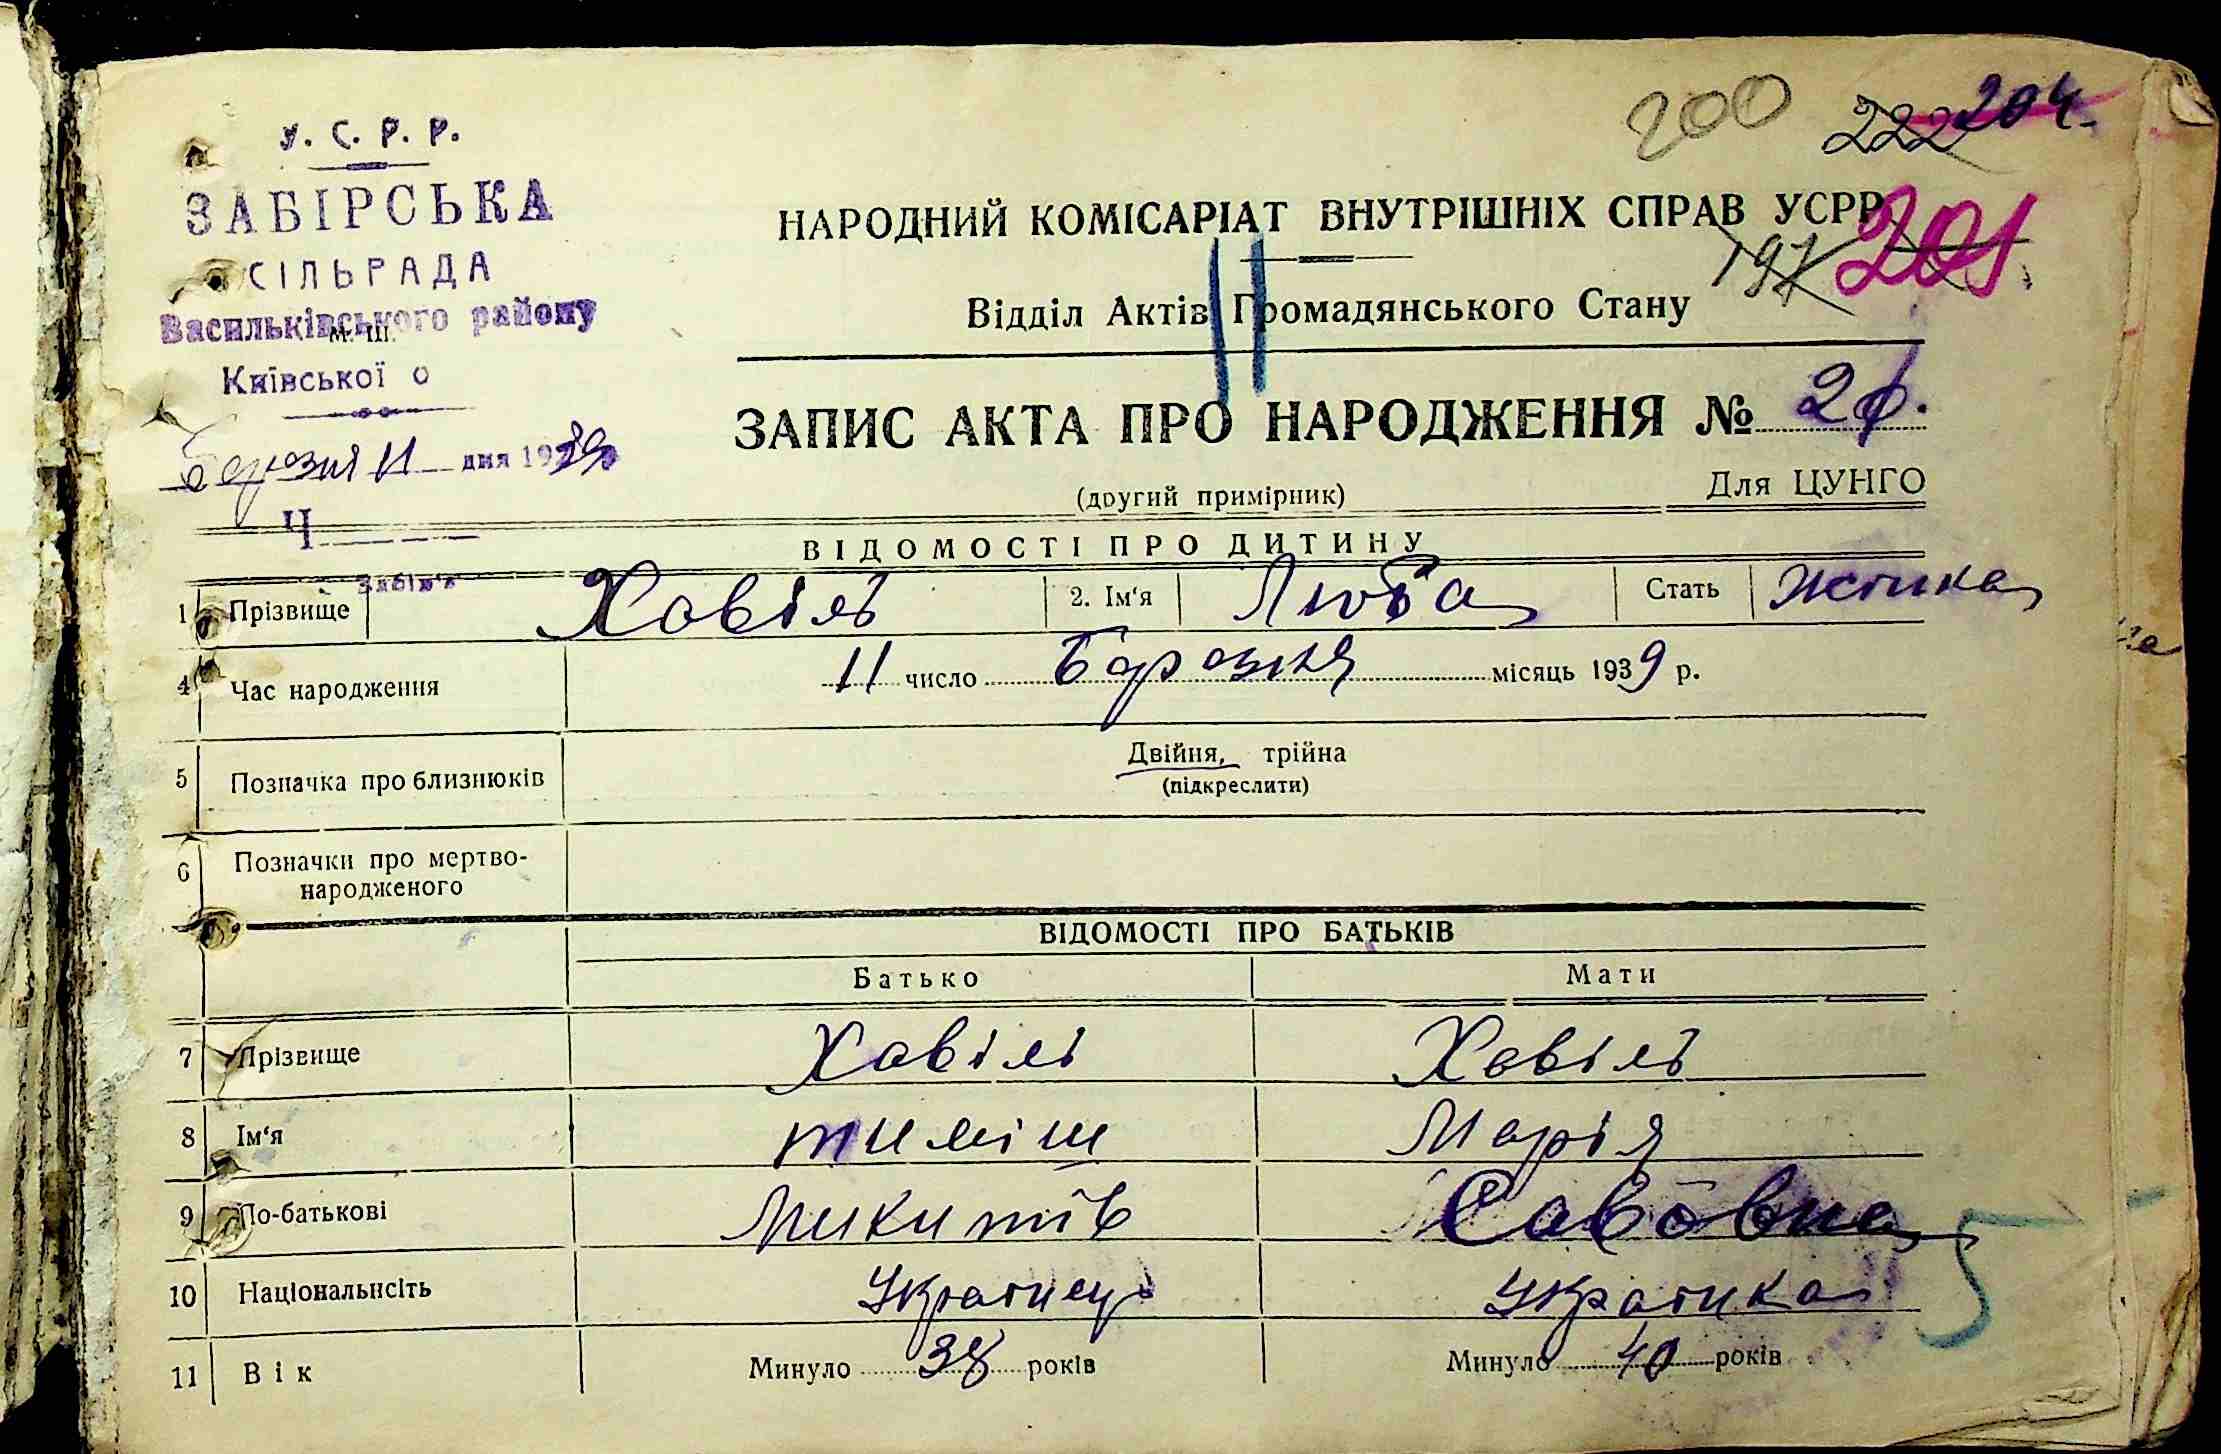 200 222 204.
У. С. Р. Р.
ЗАБІРСЬКА
СІЛЬРАДА
Васильківського району
М. Ш.
Київської о
Березня 11 дня 1939
Ч
Забір'я
НАРОДНИЙ КОМІСАРІАТ ВНУТРІШНІХ СПРАВ УСРР
197 201
Відділ Актів Громадянського Стану
ЗАПИС АКТА ПРО НАРОДЖЕННЯ №
(другий примірник) Для ЦУНГО
ВІДОМОСТІ ПРО ДИТИНУ
1 Прізвище Ховіль 2. Ім'я Люба Стать Жінка
4 Час народження 11 число Березня місяць 1939 р.
5 Позначка про близнюків Двійня, трійна
(підкреслити)
6 Позначки про мертво-
народженого
ВІДОМОСТІ ПРО БАТЬКІВ
Батько Мати
7 Прізвище Ховіль Ховіль
8 Ім'я тиміш Марія
9 По-батькові Микитів Савовна
10 Національнсіть Українец Українка
5
11 Вік Минуло 38 років Минуло 40 років